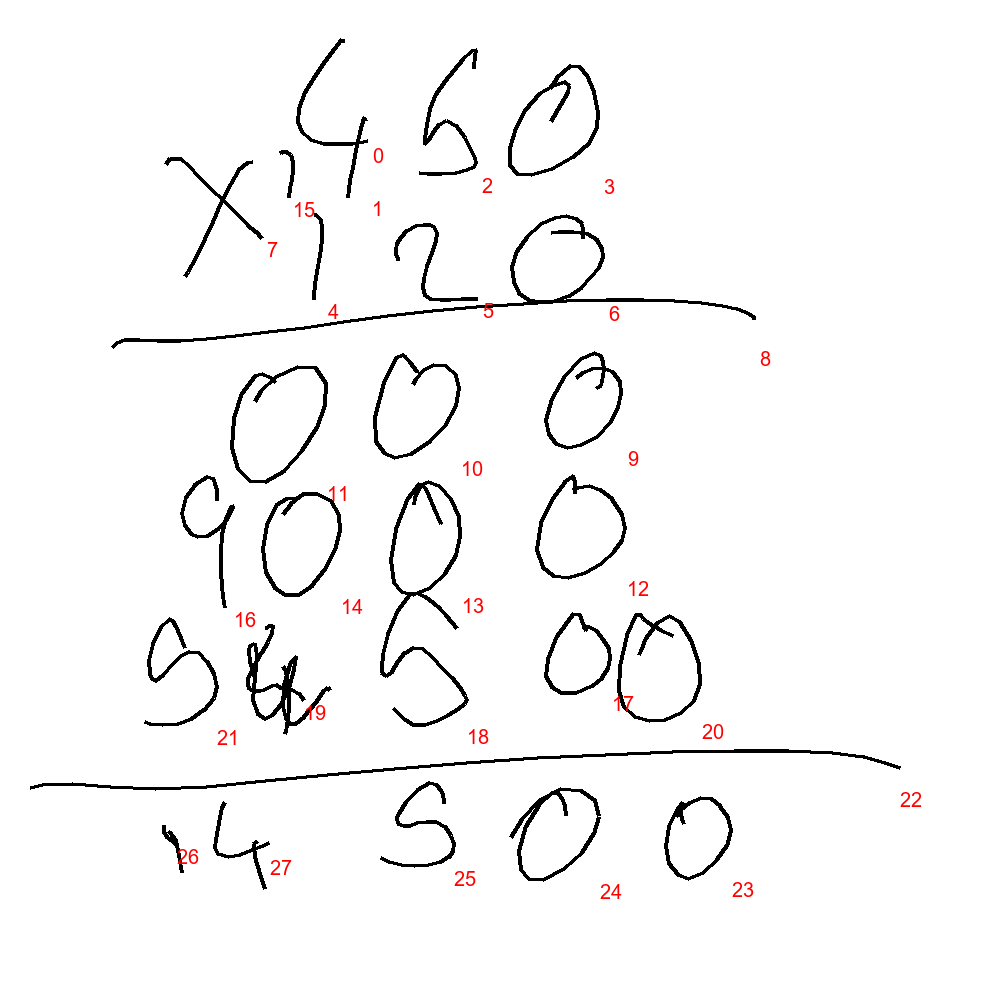 450
0 2 3
1
15 1
× 120
7 4 5 6
8
000
11 10 9
9000
16 14 13 12
5 500
21 19 18 17 20
22
14500
26 27 25 24 23